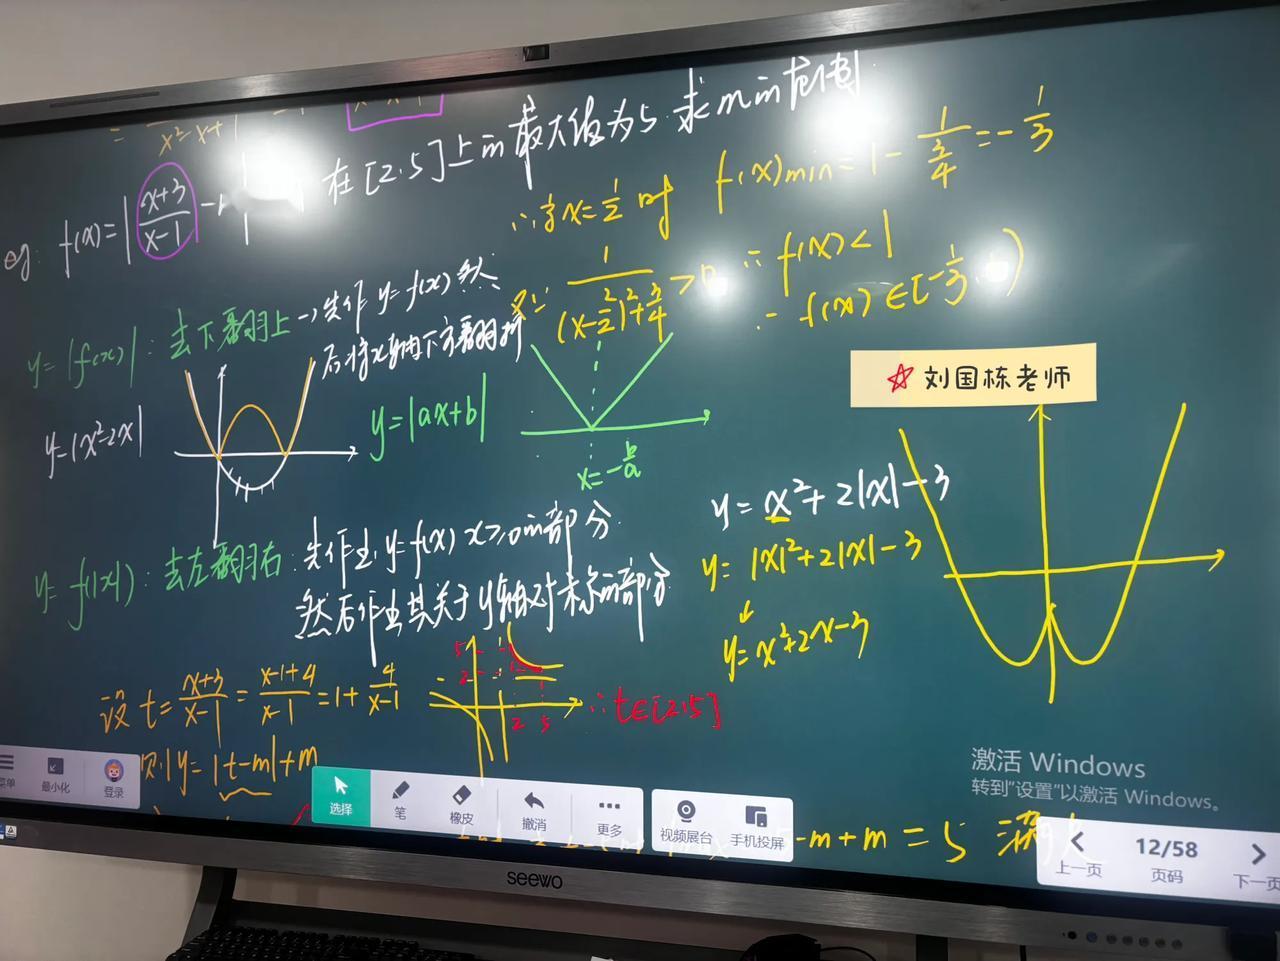 eg. f(x)=|x+3/x-1 - 在[2.5]上的最大值为5.求m的范围
∴当x=1/2时 f(x)min=1-1/(3/4)=-1/3
又∵ 1/((x-1/2)²+3/4)>0 ∴f(x)<1
∴f(x)∈[-1/3,
y=|f(x)|:去下翻上→先作y=f(x)然
后将x轴下方翻折
y=|x²-2x|
y=|ax+b|
x=-b/a
☆刘国栋老师
y=x²+2|x|-3
y=|x|²+2|x|-3
y=x²+2x-3
y=f(|x|):去左翻右:先作出y=f(x) x≥0的部分.
然后作出其关于y轴对称的部分.
设t=x+3/x-1=x-1+4/x-1=1+4/x-1
5
2
2 5
∴t∈[2.5]
则y=|t-m|+m
-m+m=5
激活 Windows
转到"设置"以激活 Windows。
菜单 最小化 登录
选择 笔 橡皮 撤消 更多 视频展台 手机投屏
上一页 12/58 页码 下一页
seewo